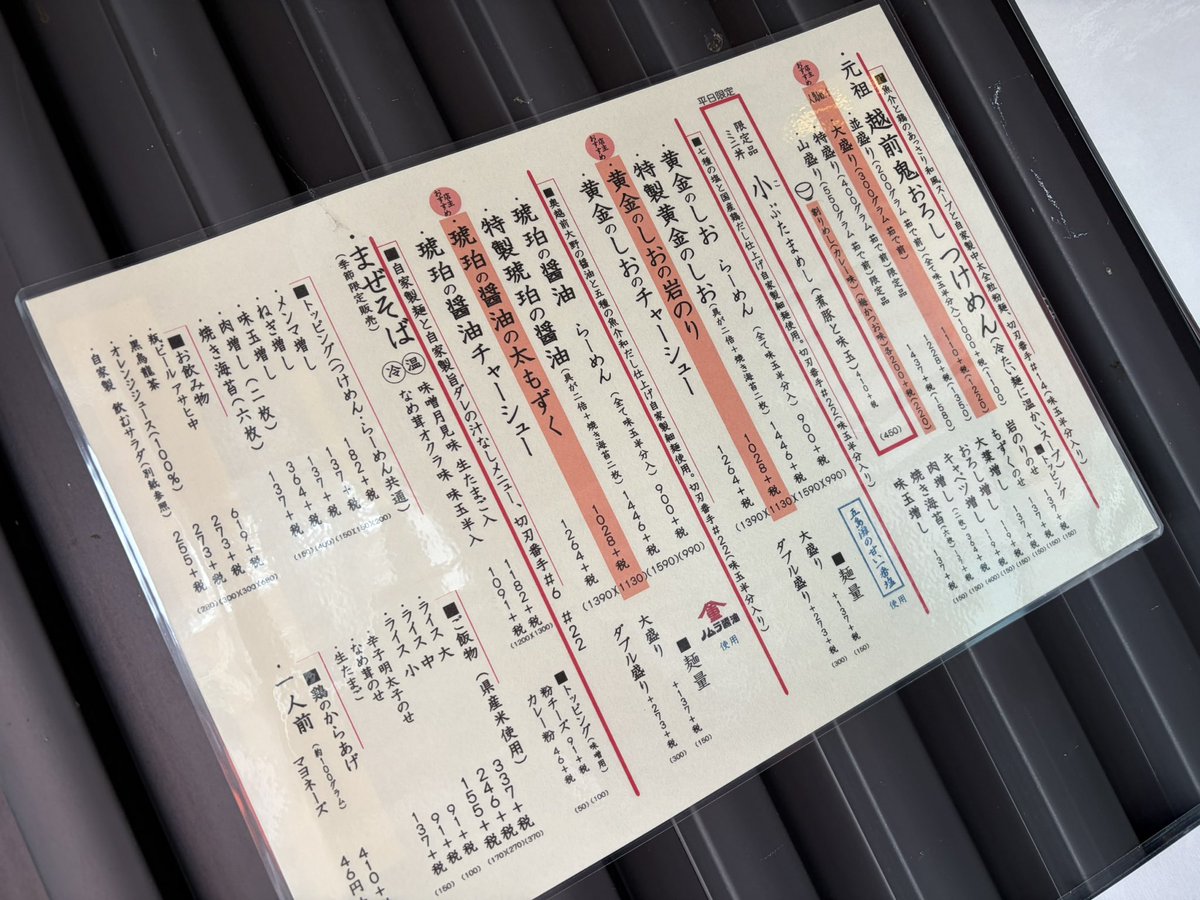 ■魚介と鶏のあっさり和風スープと自家製中太全粒粉麺、切刃番手#14(味玉半分入り)
・元祖 越前鬼おろしつけめん(冷たい麺に温かいスープ)
・並盛り(200グラム茹で前)(全て味玉半分入り)1000+税(1100)
店主おすすめ
・大盛り(300グラム茹で前) 1110+税(1220)
・特盛り(400グラム茹で前)限定品 1228+税(1350)
・山盛り(550グラム茹で前)限定品 1437+税(1580)
割りめし(カレー味)(梅かつお味)各200+税(220)
■トッピング
岩のりのせ 137+税(150)
もずくのせ 137+税(150)
大葉増し 137+税(150)
おろし増し 137+税(150)
キャベツ増し 137+税(150)
肉増し(二枚) 364+税(400)
焼き海苔(六枚) 137+税(150)
味玉増し 137+税(150)
平日限定
限定品
ミニ丼
小ぶたまめし(煮豚と味玉)410+税
(450)
■七種の塩と国産鶏だし仕上げ自家製細麺使用。切刃番手#22(味玉半分入り)
・黄金のしお らーめん(全て味玉半分入)900+税(990)
特製黄金のしお(具が二倍+焼き海苔二枚)1446+税(1590)
店主おすすめ
・黄金のしおの岩のり 1028+税(1130)
・黄金のしおのチャーシュー 1264+税(1390)
五島灘のせいご番塩
使用
■麺量
大盛り +137+税(150)
ダブル盛り+273+税(300)
■奥越前大野の醤油と五種の魚介和だし仕上げ自家製細麺使用。切刃番手#22(味玉半分入り)
・琥珀の醤油 らーめん(全て味玉半分入)900+税(990)
特製琥珀の醤油(具が二倍+焼き海苔二枚)1446+税(1590)
店主おすすめ
・琥珀の醤油の太もずく 1028+税(1130)
・琥珀の醤油チャーシュー 1264+税(1390)
ノムラ醤油
使用
■麺量
大盛り +137+税(150)
ダブル盛り+273+税(300)
■自家製麺と自家製旨ダレの汁なしメニュー、切刃番手#6 #22
・まぜそば 冷 温 味噌月見味 生たまご入 1182+税(1300)
(季節限定販売) なめ茸オクラ味 味玉半入 1091+税(1200)
■トッピング(味噌用)
粉チーズ 91+税(100)
カレー粉 46+税(50)
■トッピング(つけめん・らーめん共通)
・メンマ増し 182+税(200)
・ねぎ増し 137+税(150)
・味玉増し 137+税(150)
・肉増し(二枚) 364+税(400)
・焼き海苔(六枚) 137+税(150)
■ご飯物(県産米使用)
・ライス 大 337+税(370)
・ライス 中 246+税(270)
・ライス 小 155+税(170)
・辛子明太子のせ 91+税(100)
・なめ茸のせ 91+税
生たまご 137+税(150)
■お飲み物
・瓶ビール アサヒ中 619+税(680)
・黒烏龍茶 273+税(300)
・オレンジジュース(100%) 273+税(300)
・自家製 飲むサラダ(別紙参照) 255+税(280)
■鶏のからあげ
・一人前(約100グラム) 410+
マヨネーズ 46円